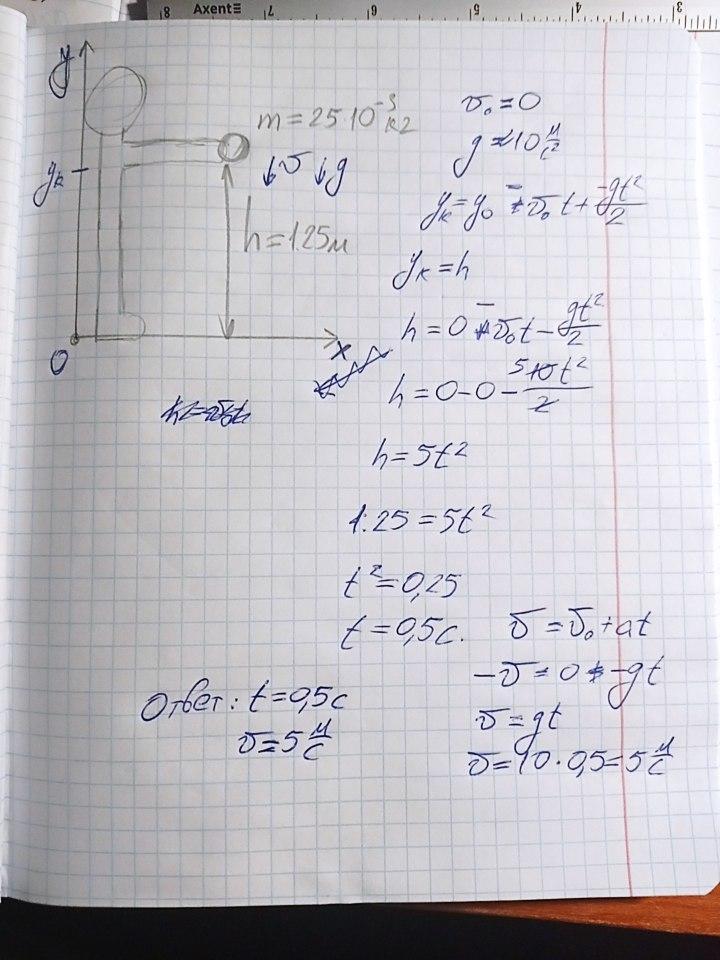 Axent
8 7 6 5 4 3
y
m = 25·10⁻³ кг
yк
↓v ↓g
h = 1.25м
O
x
v₀ = 0
g ≈ 10 м/с²
yк = y₀ - v₀t + -gt²/2
yк = h
h = 0 - v₀t - gt²/2
h = 0 - 0 - 5 10t²/2
h = 5t²
1.25 = 5t²
t² = 0,25
t = 0,5с.
v = v₀ + at
-v = 0 - gt
v = gt
v = 10 · 0,5 = 5 м/с
Ответ: t = 0,5с
v = 5 м/с